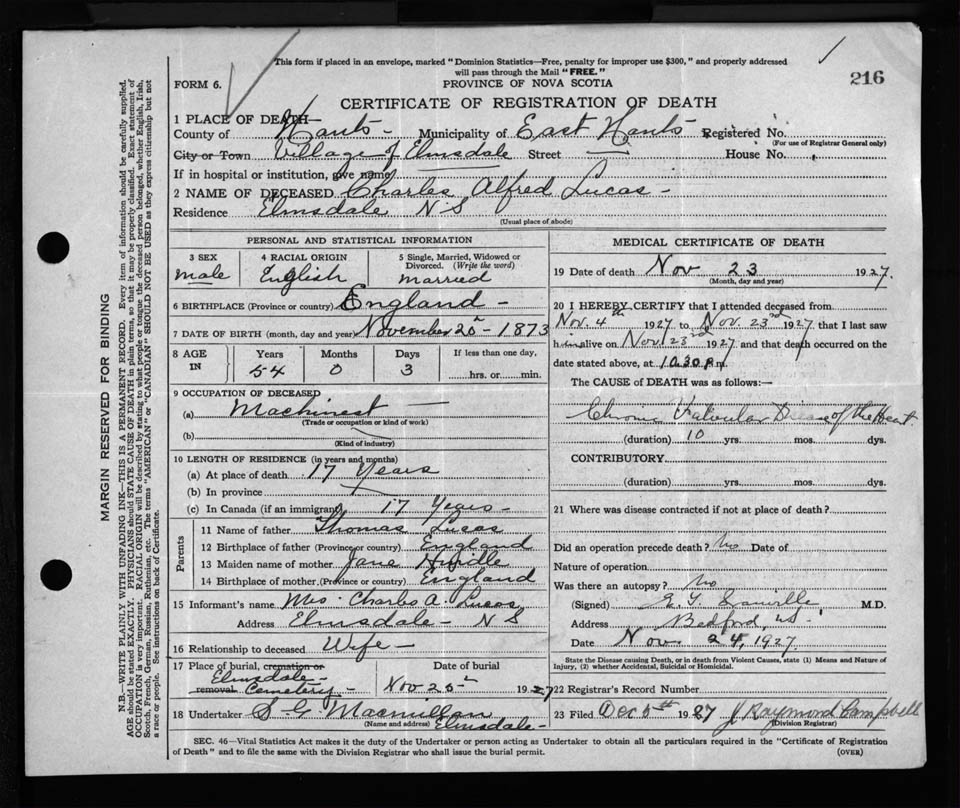 This form if placed in an envelope, marked "Dominion Statistics—Free, penalty for improper use $300," and properly addressed
will pass through the Mail "FREE."
216
FORM 6.
PROVINCE OF NOVA SCOTIA
CERTIFICATE OF REGISTRATION OF DEATH
1 PLACE OF DEATH—
County of Hants - Municipality of East Hants Registered No.
(For use of Registrar General only)
City or Town Village of Elmsdale Street — House No.
If in hospital or institution, give name
2 NAME OF DECEASED Charles Alfred Lucas -
Residence Elmsdale N S
(Usual place of abode)
PERSONAL AND STATISTICAL INFORMATION
3 SEX 4 RACIAL ORIGIN 5 Single, Married, Widowed or
Divorced. (Write the word)
male English married
6 BIRTHPLACE (Province or country) England -
7 DATE OF BIRTH (month, day and year) November 20 - 1873
8 AGE IN Years Months Days If less than one day,
54 0 3 hrs. or min.
9 OCCUPATION OF DECEASED
(a) Machinest —
(Trade or occupation or kind of work)
(b)
(Kind of industry)
10 LENGTH OF RESIDENCE (in years and months)
(a) At place of death 17 Years
(b) In province
(c) In Canada (if an immigrant) 17 Years -
Parents
11 Name of father Thomas Lucas
12 Birthplace of father (Province or country) England
13 Maiden name of mother Jane
14 Birthplace of mother (Province or country) England
15 Informant's name Mrs. Charles A. Lucas
Address Elmsdale - N S
16 Relationship to deceased Wife -
17 Place of burial, cremation or
removal Elmsdale - Cemetery -
Date of burial
Nov 25 1927
18 Undertaker S G Macmillan
(Name and address) Elmsdale -
MEDICAL CERTIFICATE OF DEATH
19 Date of death Nov 23 1927.
(Month, day and year)
20 I HEREBY CERTIFY that I attended deceased from
Nov. 4th 1927 to Nov. 23rd 1927 that I last saw
him alive on Nov. 23rd 1927 and that death occurred on the
date stated above, at 10.30 P m.
The CAUSE of DEATH was as follows:—
Chronic Valvular Disease of the Heart
(duration) 10 yrs. mos. dys.
CONTRIBUTORY
(duration) yrs. mos. dys.
21 Where was disease contracted if not at place of death?
Did an operation precede death? No Date of
Nature of operation
Was there an autopsy? No
(Signed) M.D.
Address Bedford, NS.
Date Nov 24, 1927
State the Disease causing Death, or in death from Violent Causes, state (1) Means and Nature of
Injury, (2) whether Accidental, Suicidal or Homicidal.
22 Registrar's Record Number
23 Filed Dec 5th 1927 J Raymond Campbell
Division Registrar)
SEC. 46—Vital Statistics Act makes it the duty of the Undertaker or person acting as Undertaker to obtain all the particulars required in the "Certificate of Registration
of Death" and to file the same with the Division Registrar who shall issue the burial permit.
(OVER)
MARGIN RESERVED FOR BINDING
N.B.—WRITE PLAINLY WITH UNFADING INK—THIS IS A PERMANENT RECORD. Every item of information should be carefully supplied.
AGE should be stated EXACTLY. PHYSICIANS should STATE CAUSE OF DEATH in plain terms, so that it may be properly classified. Exact statement of
OCCUPATION is very important. RACIAL ORIGIN will be described by stating to what people or tongue the deceased person belonged, whether English, Irish,
Scotch, French, German, Russian, Ruthenian, etc. The terms "AMERICAN" or "CANADIAN" SHOULD NOT BE USED as they express citizenship but not
a race or people. See instructions on back of Certificate.